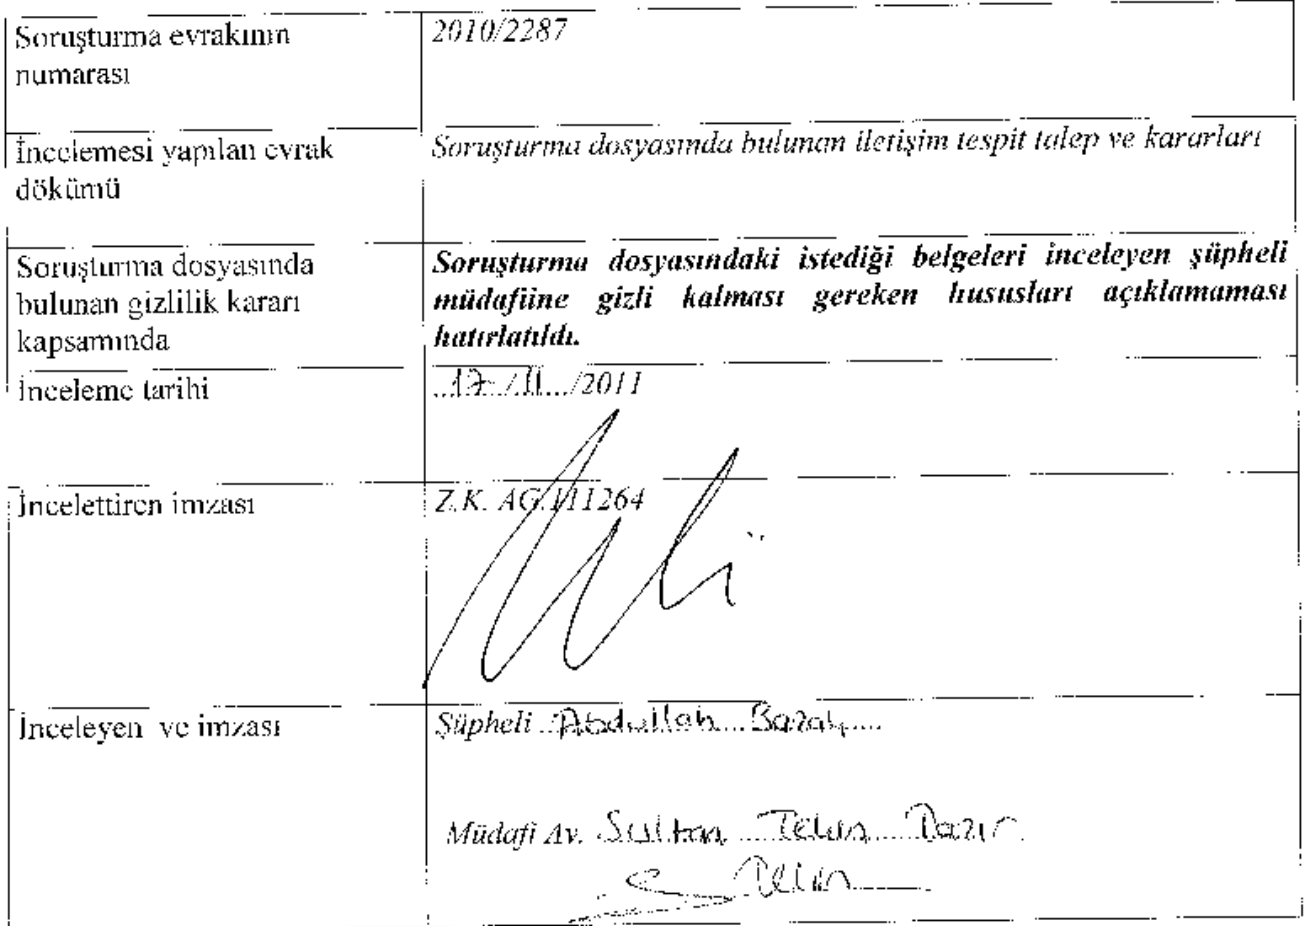 Soruşturma evrakının
numarası
2010/2287
İncelemesi yapılan evrak
dökümü
Soruşturma dosyasında bulunan iletişim tespit talep ve kararları
Soruşturma dosyasında
bulunan gizlilik kararı
kapsamında
Soruşturma dosyasındaki istediği belgeleri inceleyen şüpheli
müdafiine gizli kalması gereken hususları açıklamaması
hatırlatıldı.
İnceleme tarihi
17/11/2011
İncelettiren imzası
Z.K. AG.111264
İnceleyen ve imzası
Şüpheli Abdullah
Müdafi Av. Sultan